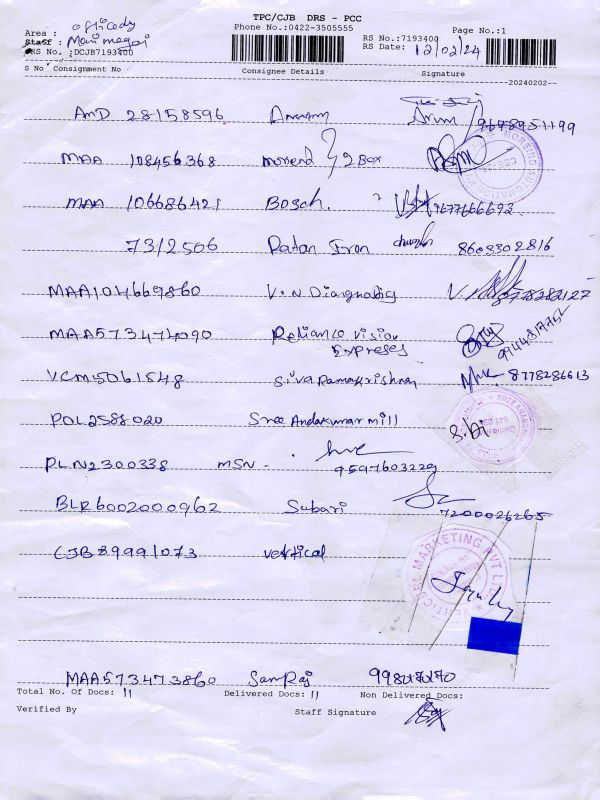 TPC/CJB DRS - PCC
Phone No.:0422-3505555
Area :
Staff : Manimegai
DRS No. :DCJB7193400
RS No.:7193400
RS Date: 12/02/24
Page No.:1
S No Consignment No Consignee Details Signature
20240202
AMD 28158596 Arun
MAA 108456368 morend } 2 Box
MAA 106686421 Bosch. 9677666692
7312506 Ratan Iron 8608302816
MAA104669860 V.N Diangnotis
MAA573474090 Reliance vision
Expreses
VCM5061548 Siva Ramakrishnan 8778286613
POL2588020 Sree Andakumar mill
PLN2300338 MSN - 9597603229
BLR6002000962 Subari 7200026265
CJB89991073 vertical
MARKETING PVT LTD
MAA573473860 SamRaj
Total No. Of Docs: 11 Delivered Docs: 11 Non Delivered Docs:
Verified By Staff Signature